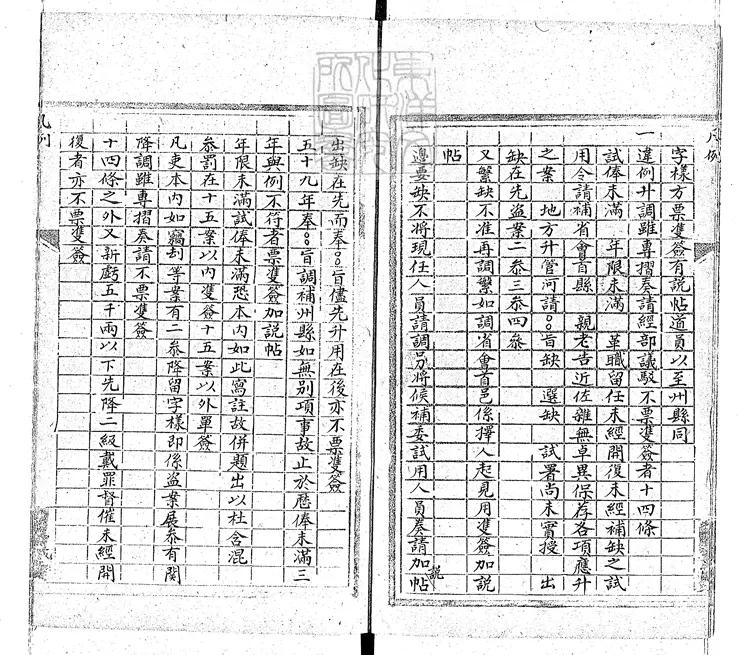 凡例
字樣方票雙簽有說帖道員以至州縣同
一
違例升調雖專摺奏請經部議駁不票雙簽者十四條
試俸未滿 年限未滿 革職留任未經開復未經補缺之試
用令請補省會首縣 親老告近佐雜無卓異保荐各項應升
之案 地方升管河請○旨缺 選缺 試署尚未實授 出
缺在先盜案二參三參四參
又繁缺不准再調繁如調省會首邑係擇人起見用雙簽加說
帖
邊要缺不將現任人員請調另將候補委試用人員奏請加說帖
凡例
出缺在先而奉○○旨儘先升用在後亦不票雙簽
五十九年奉○○旨調補州縣如無别項事故止於歷俸未滿三
年與例不符者票雙簽加說帖
年限未滿試俸未滿恐本內如此寫註故併題出以杜含混
參罰在十五案以內雙簽十五案以外單簽
凡吏本內如竊刦等案有二參降留字樣即係盜案展參有関
降調雖專摺奏請不票雙簽
十四條之外又新虧五千兩以下先降二級戴罪督催未經開
復者亦不票雙簽